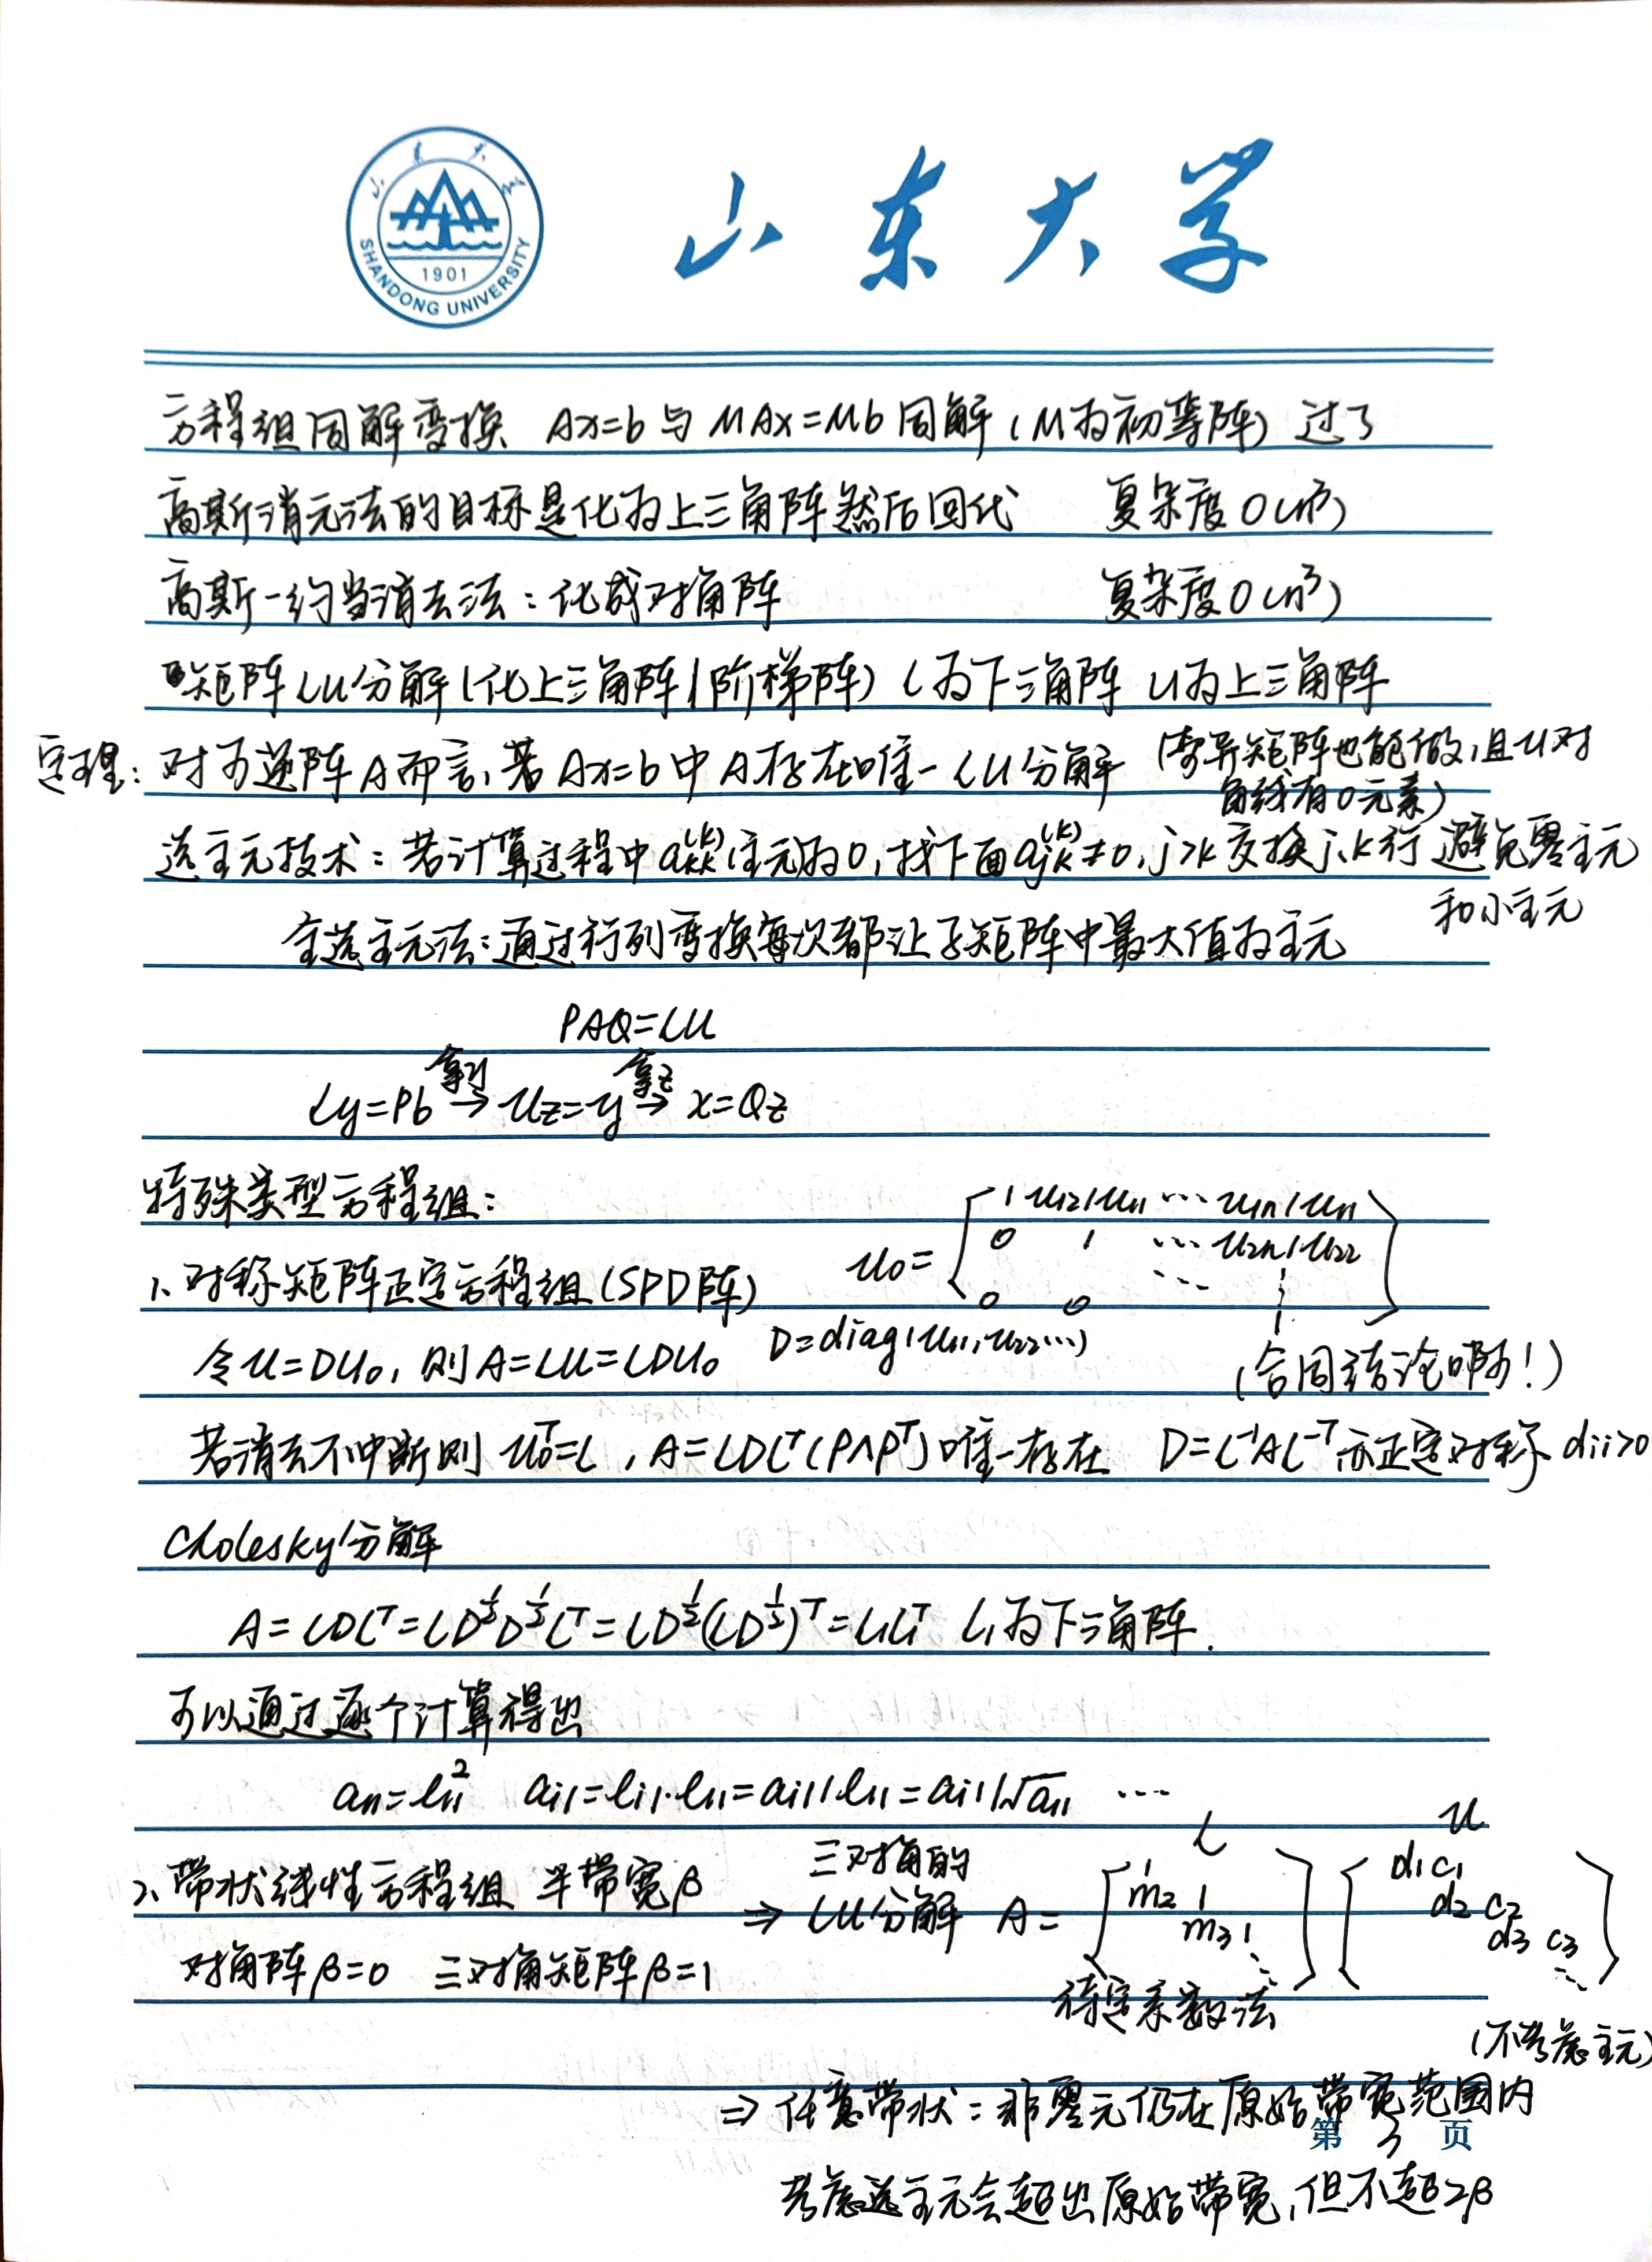 山东大学
SHANDONG UNIVERSITY
1901
山东大学
方程组同解变换 Ax=b 与 MAx=Mb 同解 (M为初等阵) 过了
高斯消元法的目标是化为上三角阵然后回代 复杂度 O(n³)
高斯-约当消去法：化成对角阵 复杂度 O(n³)
矩阵LU分解(化上三角阵/阶梯阵) L为下三角阵 U为上三角阵
定理：对可逆阵A而言，若Ax=b中A存在唯一LU分解 (奇异矩阵也能做，且U对
角线有0元素)
选主元技术：若计算过程中 aₖₖ⁽ᵏ⁾(主元)为0，找下面 aⱼₖ⁽ᵏ⁾≠0，j>k 交换j、k行 避免零主元
和小主元
全选主元法：通过行列变换每次都让子矩阵中最大值为主元
PAQ=LU
Ly=Pb →(拿y) Uz=y →(拿z) x=Qz
特殊类型方程组：
U₀= [1 u₁₂/u₁₁ … u₁ₙ/u₁₁
0 1 … u₂ₙ/u₂₂
⋱ ⋮
0 0 1]
1、对称矩阵正定方程组(SPD阵)
令U=DU₀，则A=LU=LDU₀ D=diag(u₁₁,u₂₂…) (合同结论啊！)
若消去不中断则 U₀ᵀ=L，A=LDLᵀ(PΛPᵀ)唯一存在 D=L⁻¹AL⁻ᵀ亦正定对称 dii>0
Cholesky分解
A=LDLᵀ=LD^½D^½Lᵀ=LD^½(LD^½)ᵀ=L₁L₁ᵀ L₁为下三角阵.
可以通过逐个计算得出
a₁₁=l₁₁² ai1=li1·l₁₁=ai1/l₁₁=ai1/√a₁₁ …
2、带状线性方程组 半带宽β ⇒ 三对角的
LU分解 A= L [1
m₂ 1
m₃ 1
⋱] U [d₁ c₁
d₂ c₂
d₃ c₃
⋱]
对角阵β=0 三对角矩阵β=1
待定系数法
(不考虑主元)
⇒ 任意带状：非零元仍在原始带宽范围内
第 3 页
考虑选主元会超出原始带宽，但不超2β